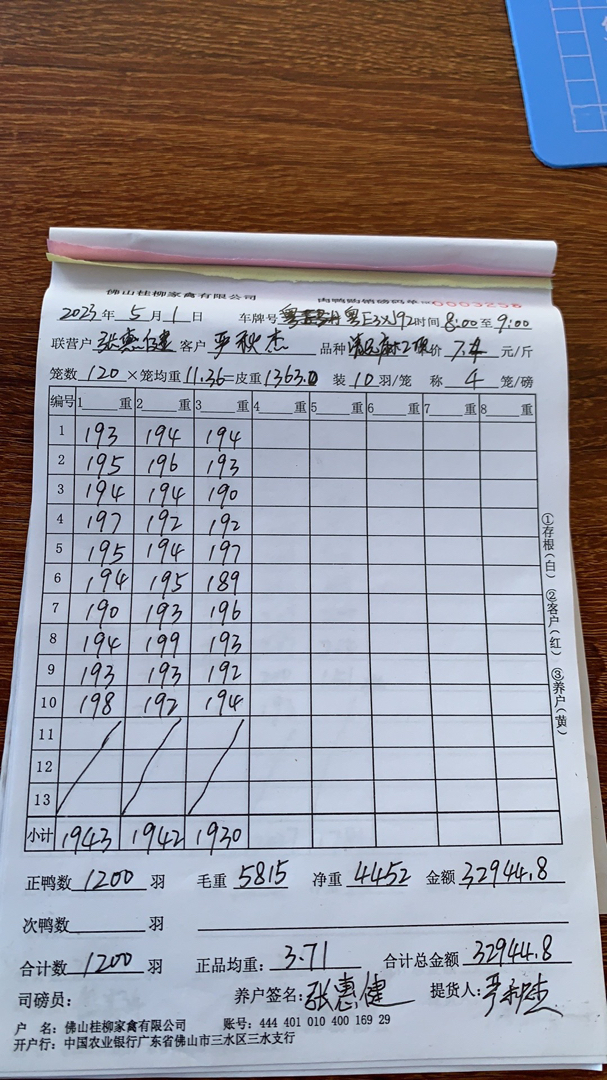 佛山桂柳家禽有限公司 肉鸭购销磅码单 0003256
2023年 5月 1日 车牌号 粤E3X192 时间 8:00至9:00
联营户 张惠健 客户 严秋杰 品种 价 7.4 元/斤
笼数 120 ×笼均重 11.36=皮重 1363.0 装 10 羽/笼 称 4 笼/磅
编号 1 重 2 重 3 重 4 重 5 重 6 重 7 重 8 重
1 193 194 194
2 195 196 193
3 194 194 190
4 197 192 192
5 195 194 197
6 194 195 189
7 190 193 196
8 194 199 193
9 193 193 192
10 198 192 194
11
12
13
小计 1943 1942 1930
①存根(白) ②客户(红) ③养户(黄)
正鸭数 1200 羽 毛重 5815 净重 4452 金额 32944.8
次鸭数 羽
合计数 1200 羽 正品均重: 3.71 合计总金额 32944.8
司磅员: 养户签名: 张惠健 提货人: 严秋杰
户 名: 佛山桂柳家禽有限公司 账号: 444 401 010 400 169 29
开户行: 中国农业银行广东省佛山市三水区三水支行